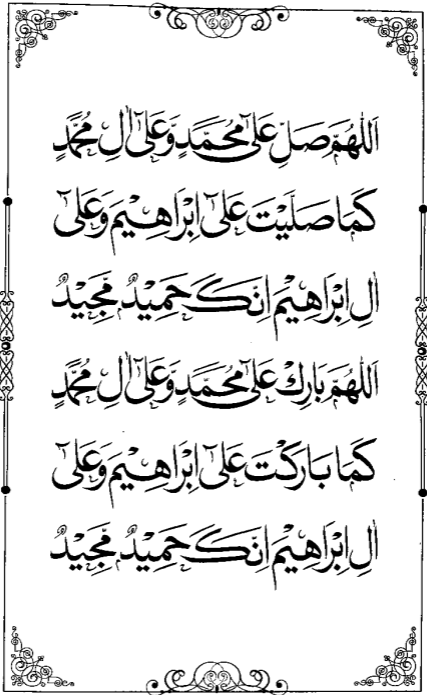 اَللّٰهُمَّ صَلِّ عَلٰی مُحَمَّدٍ وَّعَلٰٓی اٰلِ مُحَمَّدٍ
كَمَا صَلَّيْتَ عَلٰٓی اِبْرَاهِيْمَ وَعَلٰٓی
اٰلِ اِبْرَاهِيْمَ اِنَّكَ حَمِيْدٌ مَّجِيْدٌ
اَللّٰهُمَّ بَارِكْ عَلٰی مُحَمَّدٍ وَّعَلٰٓی اٰلِ مُحَمَّدٍ
كَمَا بَارَكْتَ عَلٰٓی اِبْرَاهِيْمَ وَعَلٰٓی
اٰلِ اِبْرَاهِيْمَ اِنَّكَ حَمِيْدٌ مَّجِيْدٌ